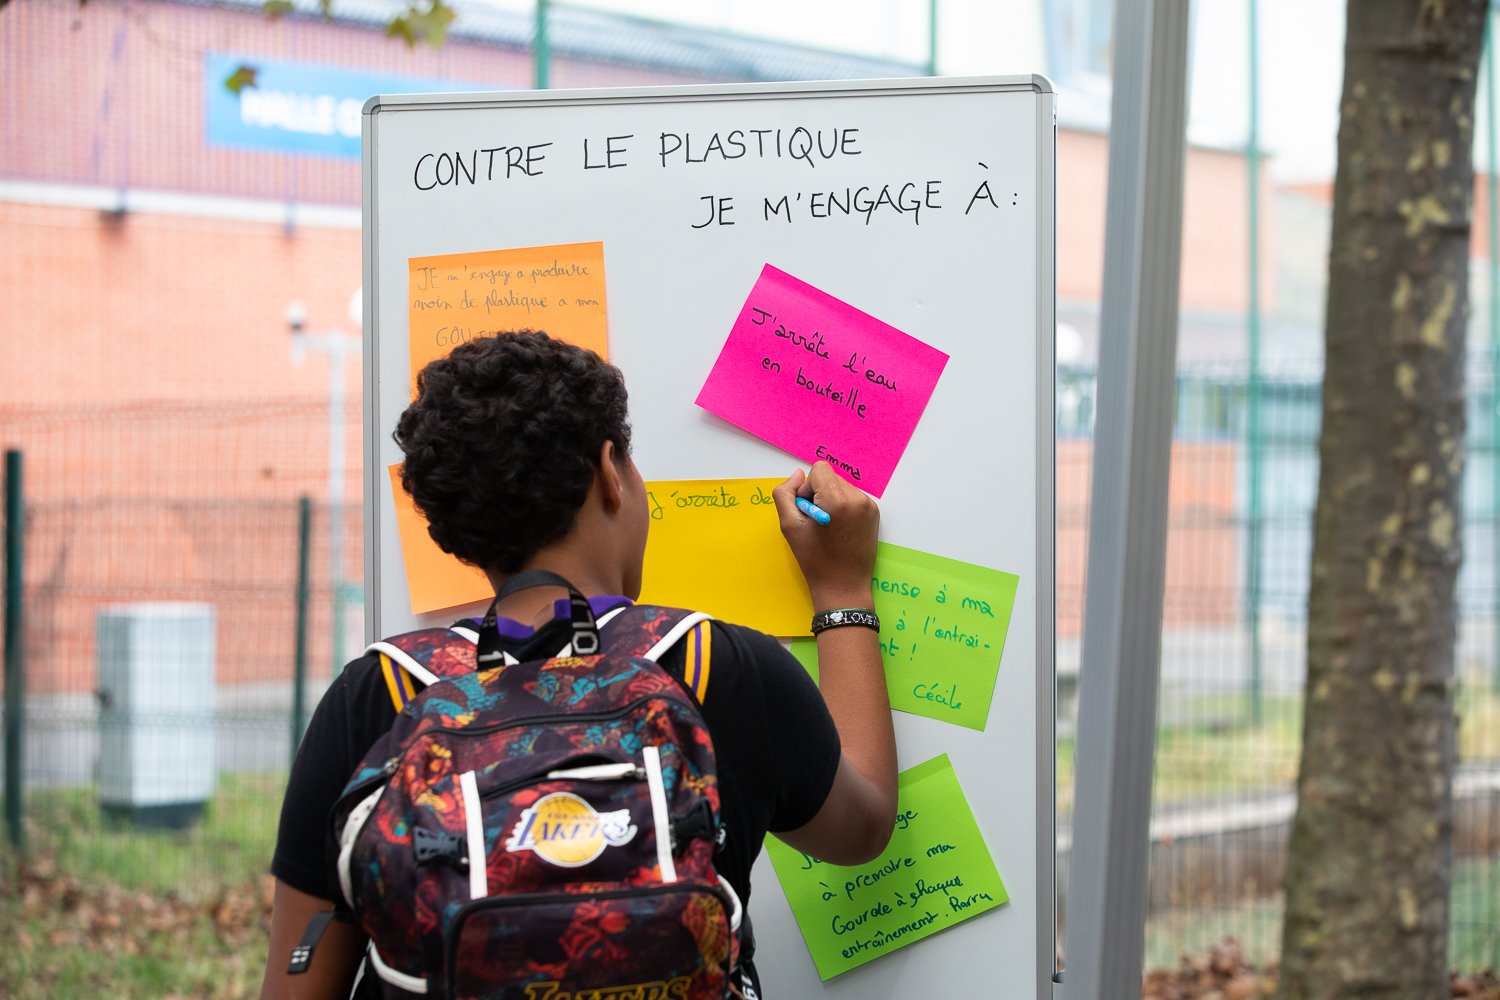 HALLE
CONTRE LE PLASTIQUE
JE M'ENGAGE À :
JE m'engage a produire
moin de plastique a mon
J'arrête l'eau
en bouteille
Emma
J'arrête de
pense à ma
à l'entrai-
nt !
Cécile
I LOVE
Je
à prendre ma
Gourde à chaque
entraînement.
LOS ANGELES
LAKERS
LAKERS